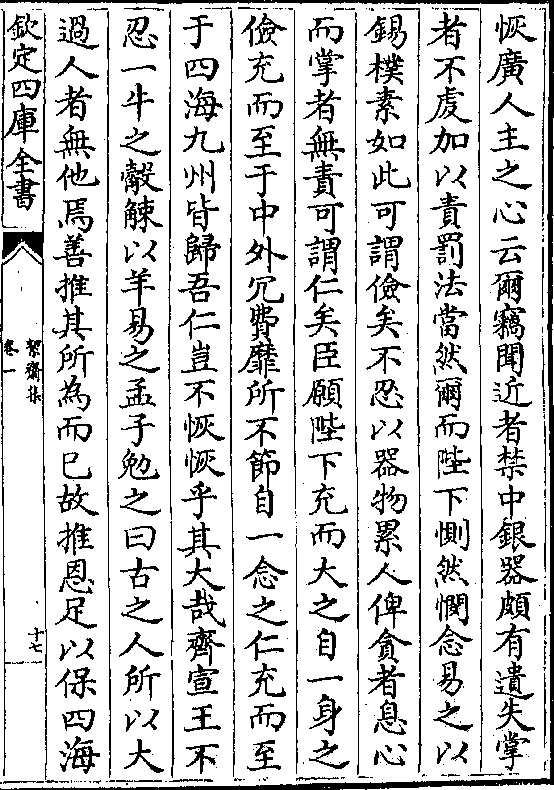 恢廣人主之心云爾竊聞近者禁中銀器頗有遺失掌
者不䖍加以責罰法當然爾而陛下惻然憫念易之以
錫樸素如此可謂儉矣不忍以器物累人俾貪者息心
而掌者無責可謂仁矣臣願陛下充而大之自一身之
儉充而至于中外冗費靡所不節自一念之仁充而至
于四海九州皆歸吾仁豈不恢恢乎其大哉齊宣王不
忍一牛之觳觫以羊易之孟子勉之曰古之人所以大
過人者無他焉善推其所為而已故推恩足以保四海
欽定四庫全書
絜齋集
卷一
十七